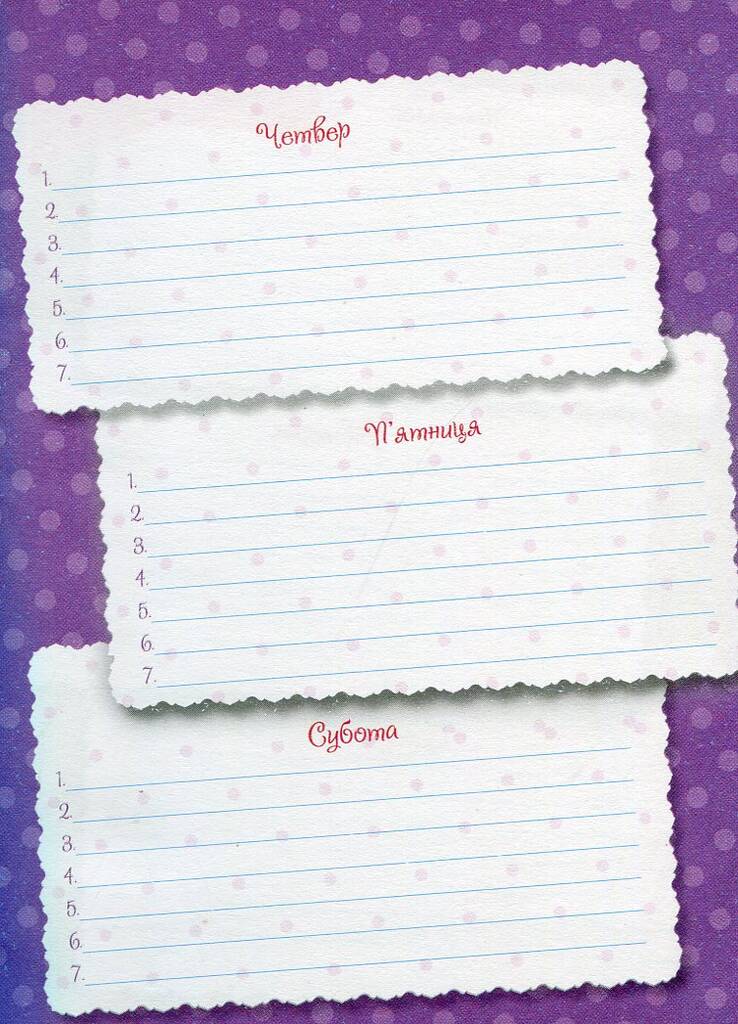 Четвер
1.
2.
3.
4.
5.
6.
7.
П'ятниця
1.
2.
3.
4.
5.
6.
7.
Субота
1.
2.
3.
4.
5.
6.
7.